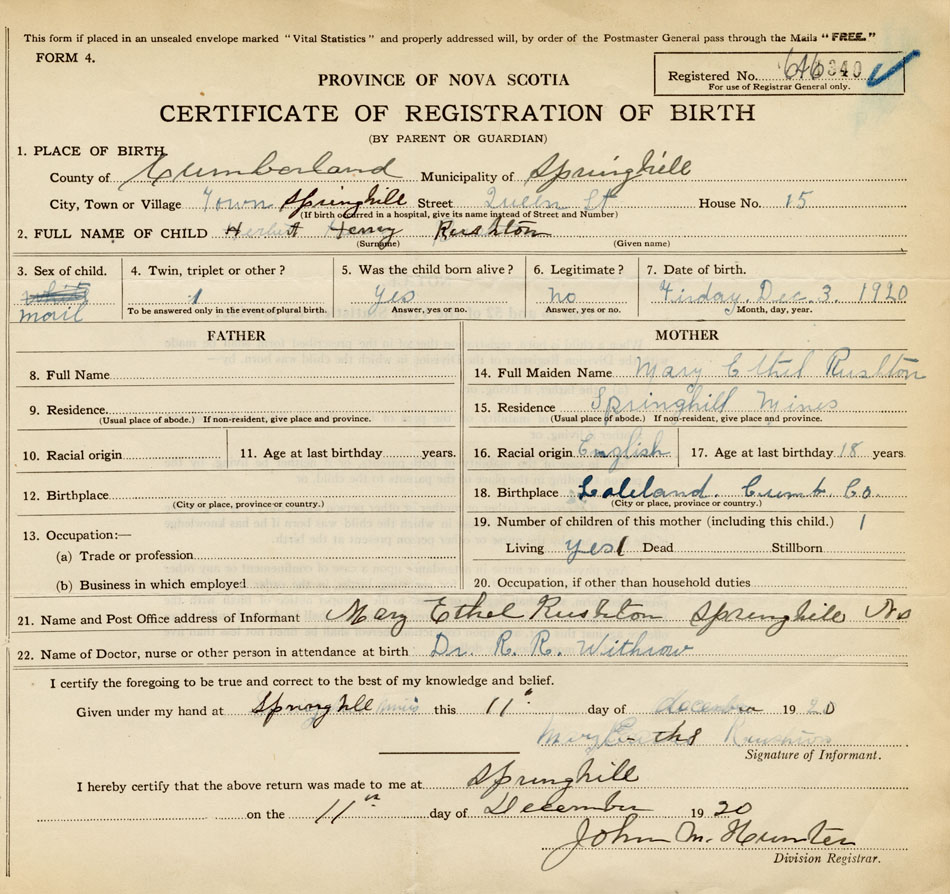 This form if placed in an unsealed envelope marked "Vital Statistics" and properly addressed will, by order of the Postmaster General pass through the Mails "FREE."
FORM 4.
PROVINCE OF NOVA SCOTIA
Registered No.
For use of Registrar General only.
CERTIFICATE OF REGISTRATION OF BIRTH
(BY PARENT OR GUARDIAN)
1. PLACE OF BIRTH
County of Cumberland Municipality of Springhill
City, Town or Village Town Springhill Street Queen St House No. 15
(If birth occurred in a hospital, give its name instead of Street and Number)
2. FULL NAME OF CHILD Herbert Henry Rushton
(Surname) (Given name)
3. Sex of child. 4. Twin, triplet or other? 5. Was the child born alive? 6. Legitimate? 7. Date of birth.
mail 1 yes no Firday. Dec. 3. 1920
To be answered only in the event of plural birth. Answer, yes or no. Answer, yes or no. Month, day, year.
FATHER MOTHER
8. Full Name 14. Full Maiden Name Mary Ethel Rushton
9. Residence. 15. Residence Springhill Mines
(Usual place of abode.) If non-resident, give place and province. (Usual place of abode.) If non-resident, give place and province.
10. Racial origin 11. Age at last birthday years. 16. Racial origin English 17. Age at last birthday 18 years.
12. Birthplace 18. Birthplace Cumb. Co.
(City or place, province or country.) (City or place, province or country.)
13. Occupation:— 19. Number of children of this mother (including this child.) 1
(a) Trade or profession Living yes 1 Dead Stillborn
(b) Business in which employed 20. Occupation, if other than household duties
21. Name and Post Office address of Informant Mary Ethel Rushton Springhill Ns
22. Name of Doctor, nurse or other person in attendance at birth Dr. R. R. Withrow
I certify the foregoing to be true and correct to the best of my knowledge and belief.
Given under my hand at Springhill this 11" day of december 1920
Mary
Signature of Informant.
I hereby certify that the above return was made to me at Springhill
on the 11th day of December 1920
John M. Hunter
Division Registrar.